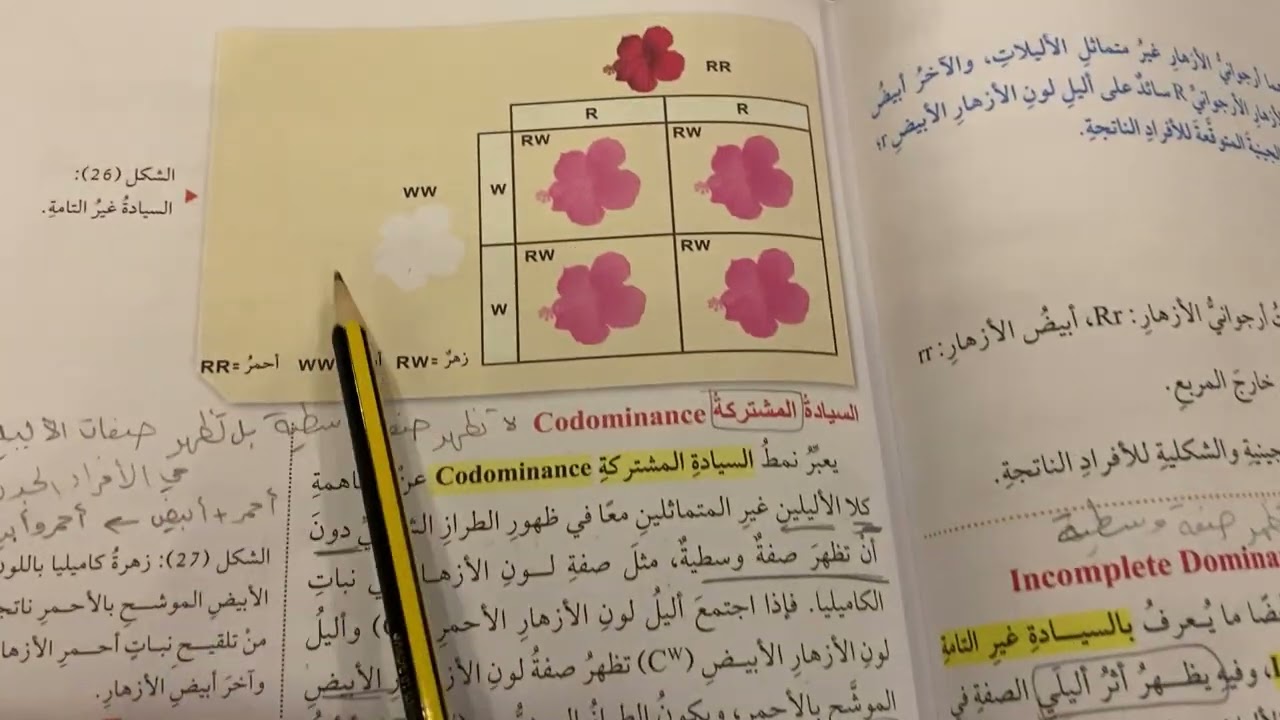 ما أرجوانيُّ الأزهارِ غيرُ متماثلِ الأليلاتِ، والآخرُ أبيضُ
الأزهارِ الأرجوانيُّ R سائدٌ على أليلِ لونِ الأزهارِ الأبيضِ r؛
الجينيةَ المتوقَّعةَ للأفرادِ الناتجةِ.
أرجوانيُّ الأزهارِ: Rr، أبيضُ الأزهارِ: rr
خارجَ المربعِ.
جينيةِ والشكليةِ للأفرادِ الناتجةِ.
تظهر صفة وسطية
Incomplete Domina
ضًا ما يُعرفُ بالسيادةِ غيرِ التامةِ
، وفيهِ يظهرُ أثرُ أليلَي الصفةِ في
RR
R R
RW RW
W
WW
RW RW
W
RR= أحمرُ WW RW= زهرٌ
الشكل (26):
السيادةُ غيرُ التامةِ.
السيادةُ المشتركةُ Codominance
لا تظهر وسطية بل تظهر صفات
في الأفراد
أحمر + أبيض ←
يعبِّرُ نمطُ السيادةِ المشتركةِ Codominance عنْ
كلا الأليلينِ غيرِ المتماثلينِ معًا في ظهورِ الطرازِ دونَ
أنْ تظهرَ صفةٌ وسطيةٌ، مثلَ صفةِ لونِ نباتِ
الكاميليا. فإذا اجتمعَ أليلُ لونِ الأزهارِ الأحمرِ وأليلُ
لونِ الأزهارِ الأبيضِ (Cᵂ) تظهرُ صفةُ لونِ الأبيضِ
الموشَّحِ بالأحمرِ، ويكونُ الطرازُ
الشكل (27): زهرةُ كاميليا باللونِ
الأبيضِ الموشحِ بالأحمرِ
منْ تلقيحِ نباتِ أحمرِ
وآخرَ أبيضِ الأزهارِ.